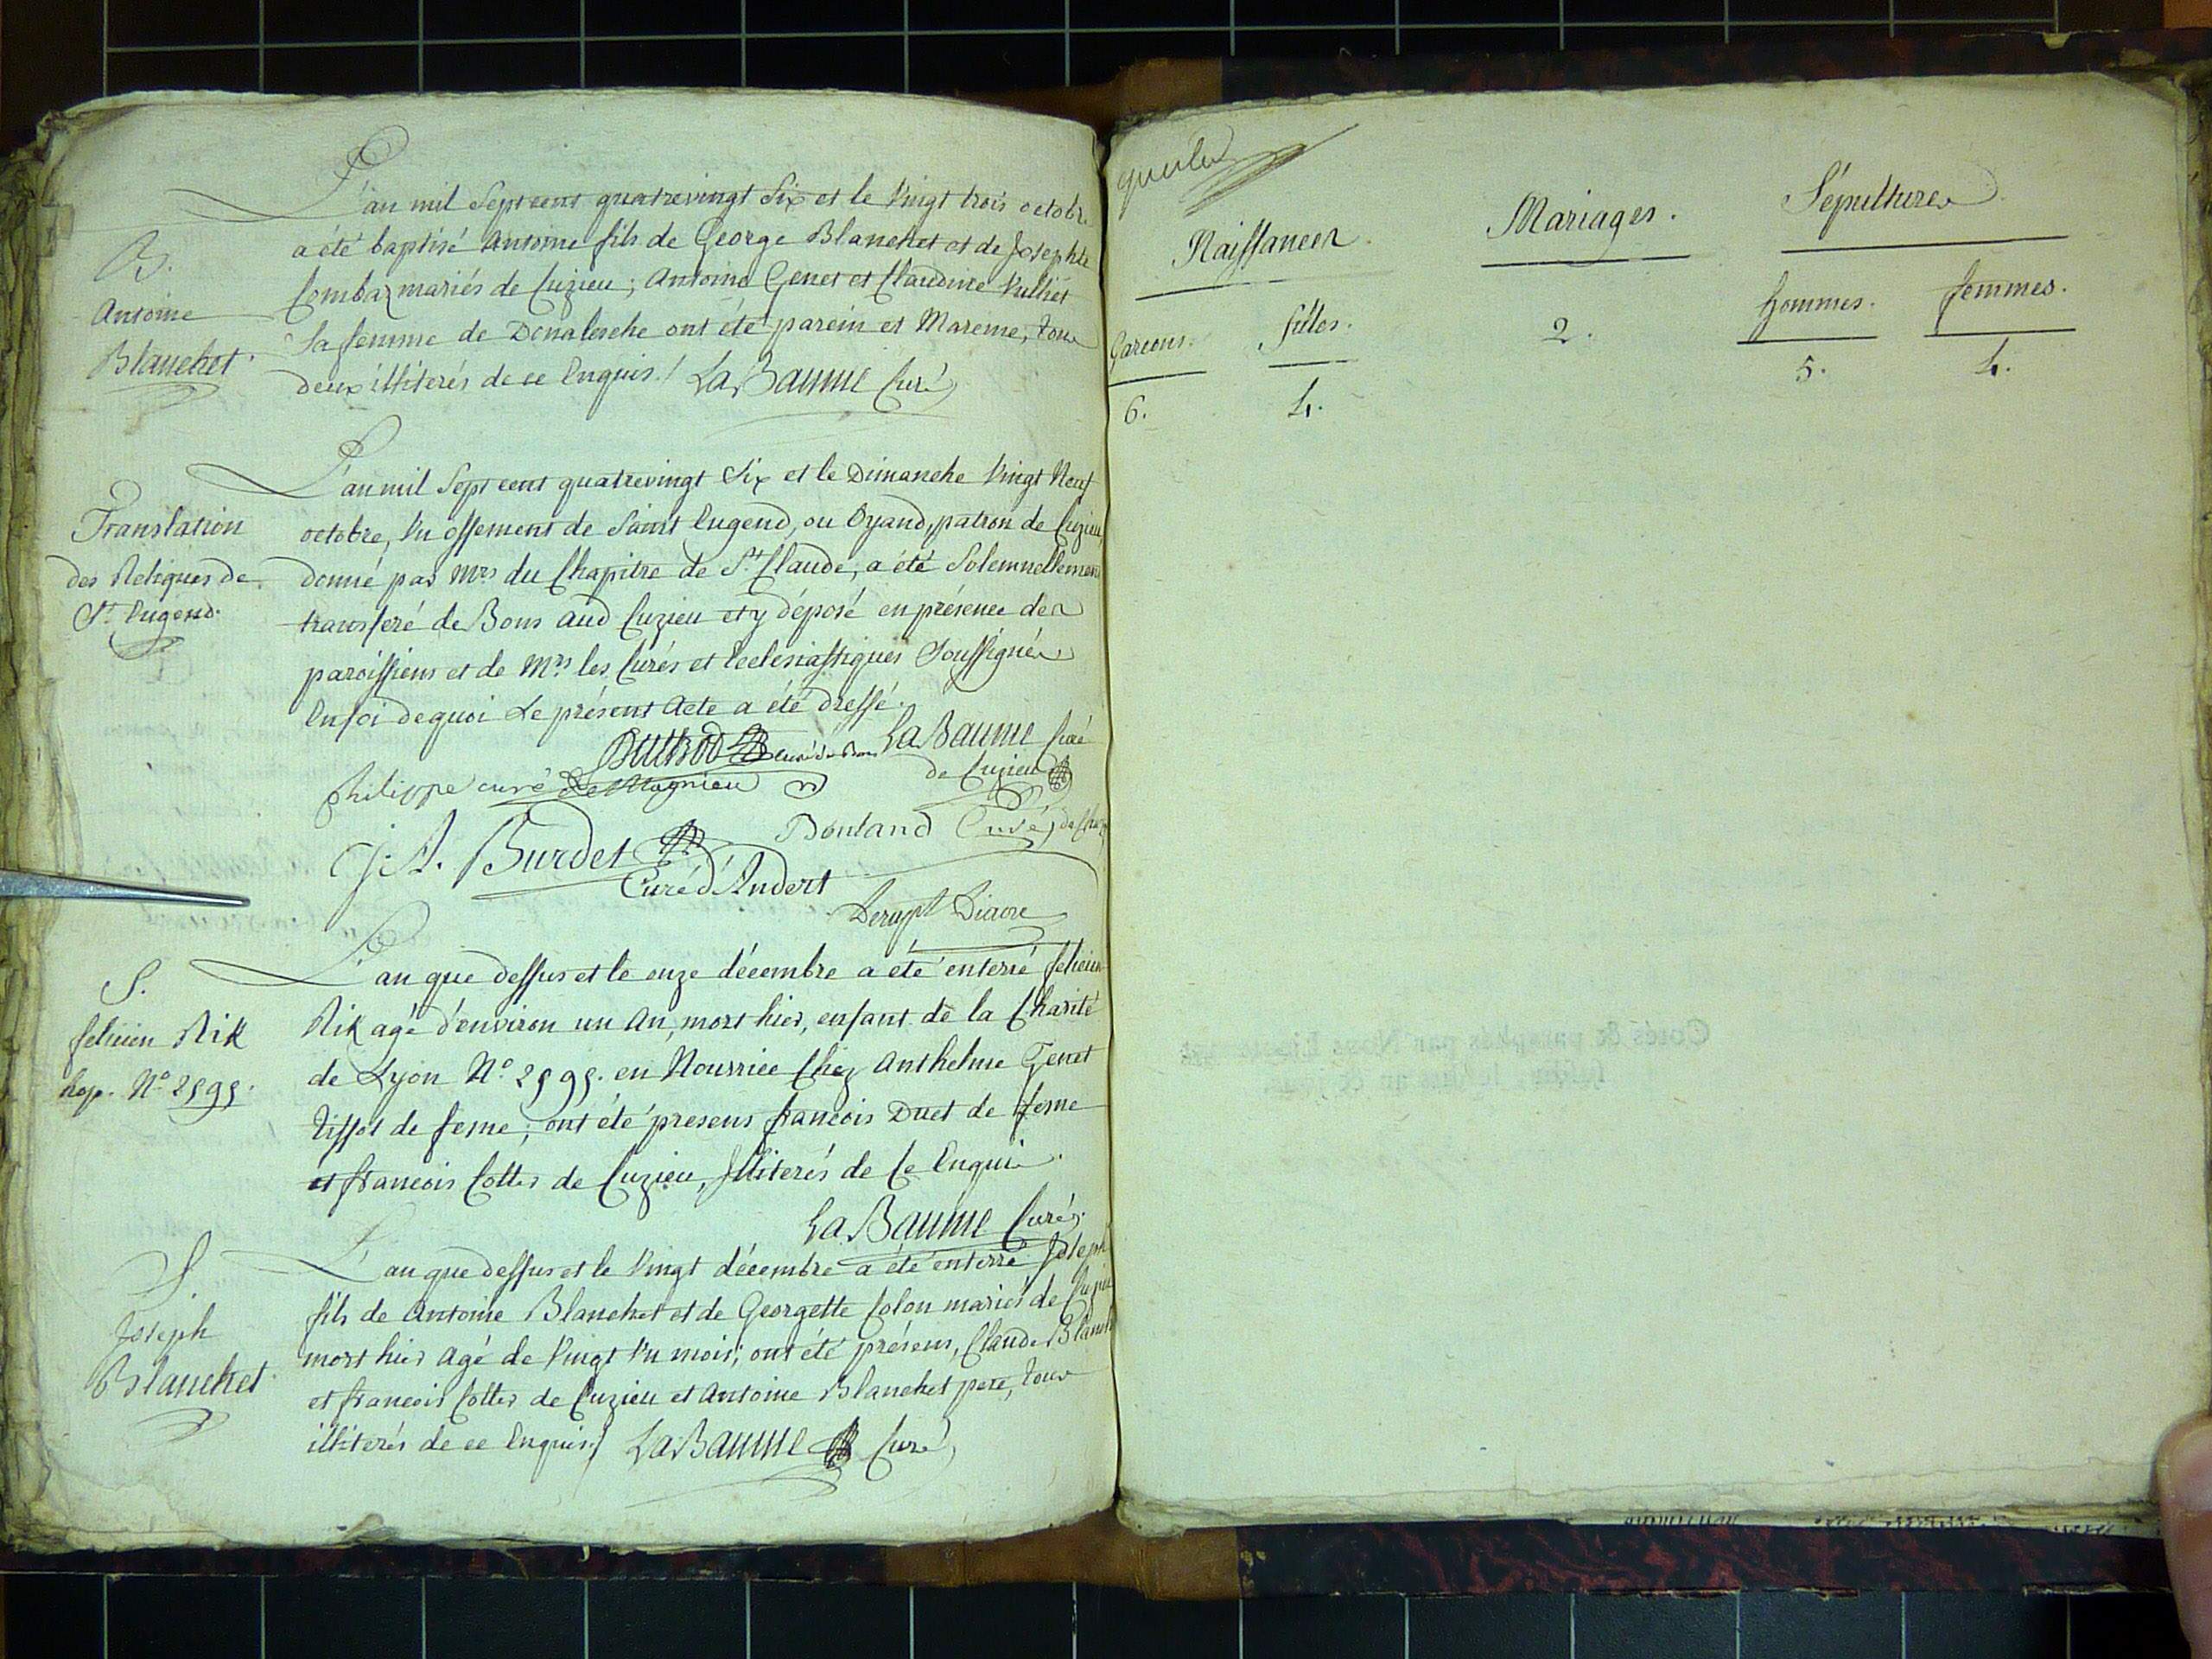 L'an mil Sept cent quatrevingt Six et le Vingt trois octobre
a été baptisé Antoine fils de George Blanchet et de Josephte
B.
Combaz mariés de Cuzieu ; Antoine Genet et Claudine Vulliet
Antoine
Sa femme de ont été parein et Mareine, tous
Blanchet.
deux illiterés de ce Enquis ./ La Baume Curé
L'an mil Sept cent quatrevingt Six et le Dimanche Vingt Neuf
Translation
octobre, Un ossement de Saint Eugend, ou Oyand, patron de Cuzieu,
des Reliques de
donné par Mrs du Chapitre de St Claude, a été Solemnellement
St Eugend.
transferé de Bons aud Cuzieu et y déposé en présence des
paroissiens et de Mrs les Curés et Ecclesiastiques Soussignés
En foi de quoi Le présent Acte a été dressé.
curé de Bons La Baume Curé
de Cuzieu
Philippe curé de Magnieu
Bouland Curé de
J. A. Burdet
Curé d'Andert
Derupt Diacre
L'an que dessus et le onze décembre a été enterré felicien
S.
Rik agé d'environ un An, mort hier, enfant de la Charité
felicien Rik
de Lyon No 2595. en Nourrice Chez Anthelme Genet
hop. No 2595.
Tissot de feme ; ont été presens francois Duet de feme
et francois Cottes de Cuzieu, Illiterés de Ce Enquis.
La Baume Curé.
L'an que dessus et le Vingt décembre a été enterré Joseph
S.
fils de Antoine Blanchet et de Georgette Colon mariés de Cuzieu
Joseph
mort hier agé de Vingt Un mois ; ont été présens, Claude Blanchet
Blanchet
et francois Cottes de Cuzieu et Antoine Blanchet pere, tous
illiterés de ce Enquis ./ La Baume Curé
Naissances.
Mariages.
Sépultures.
Garcons.
filles.
2.
hommes.
femmes.
6.
4.
5.
4.